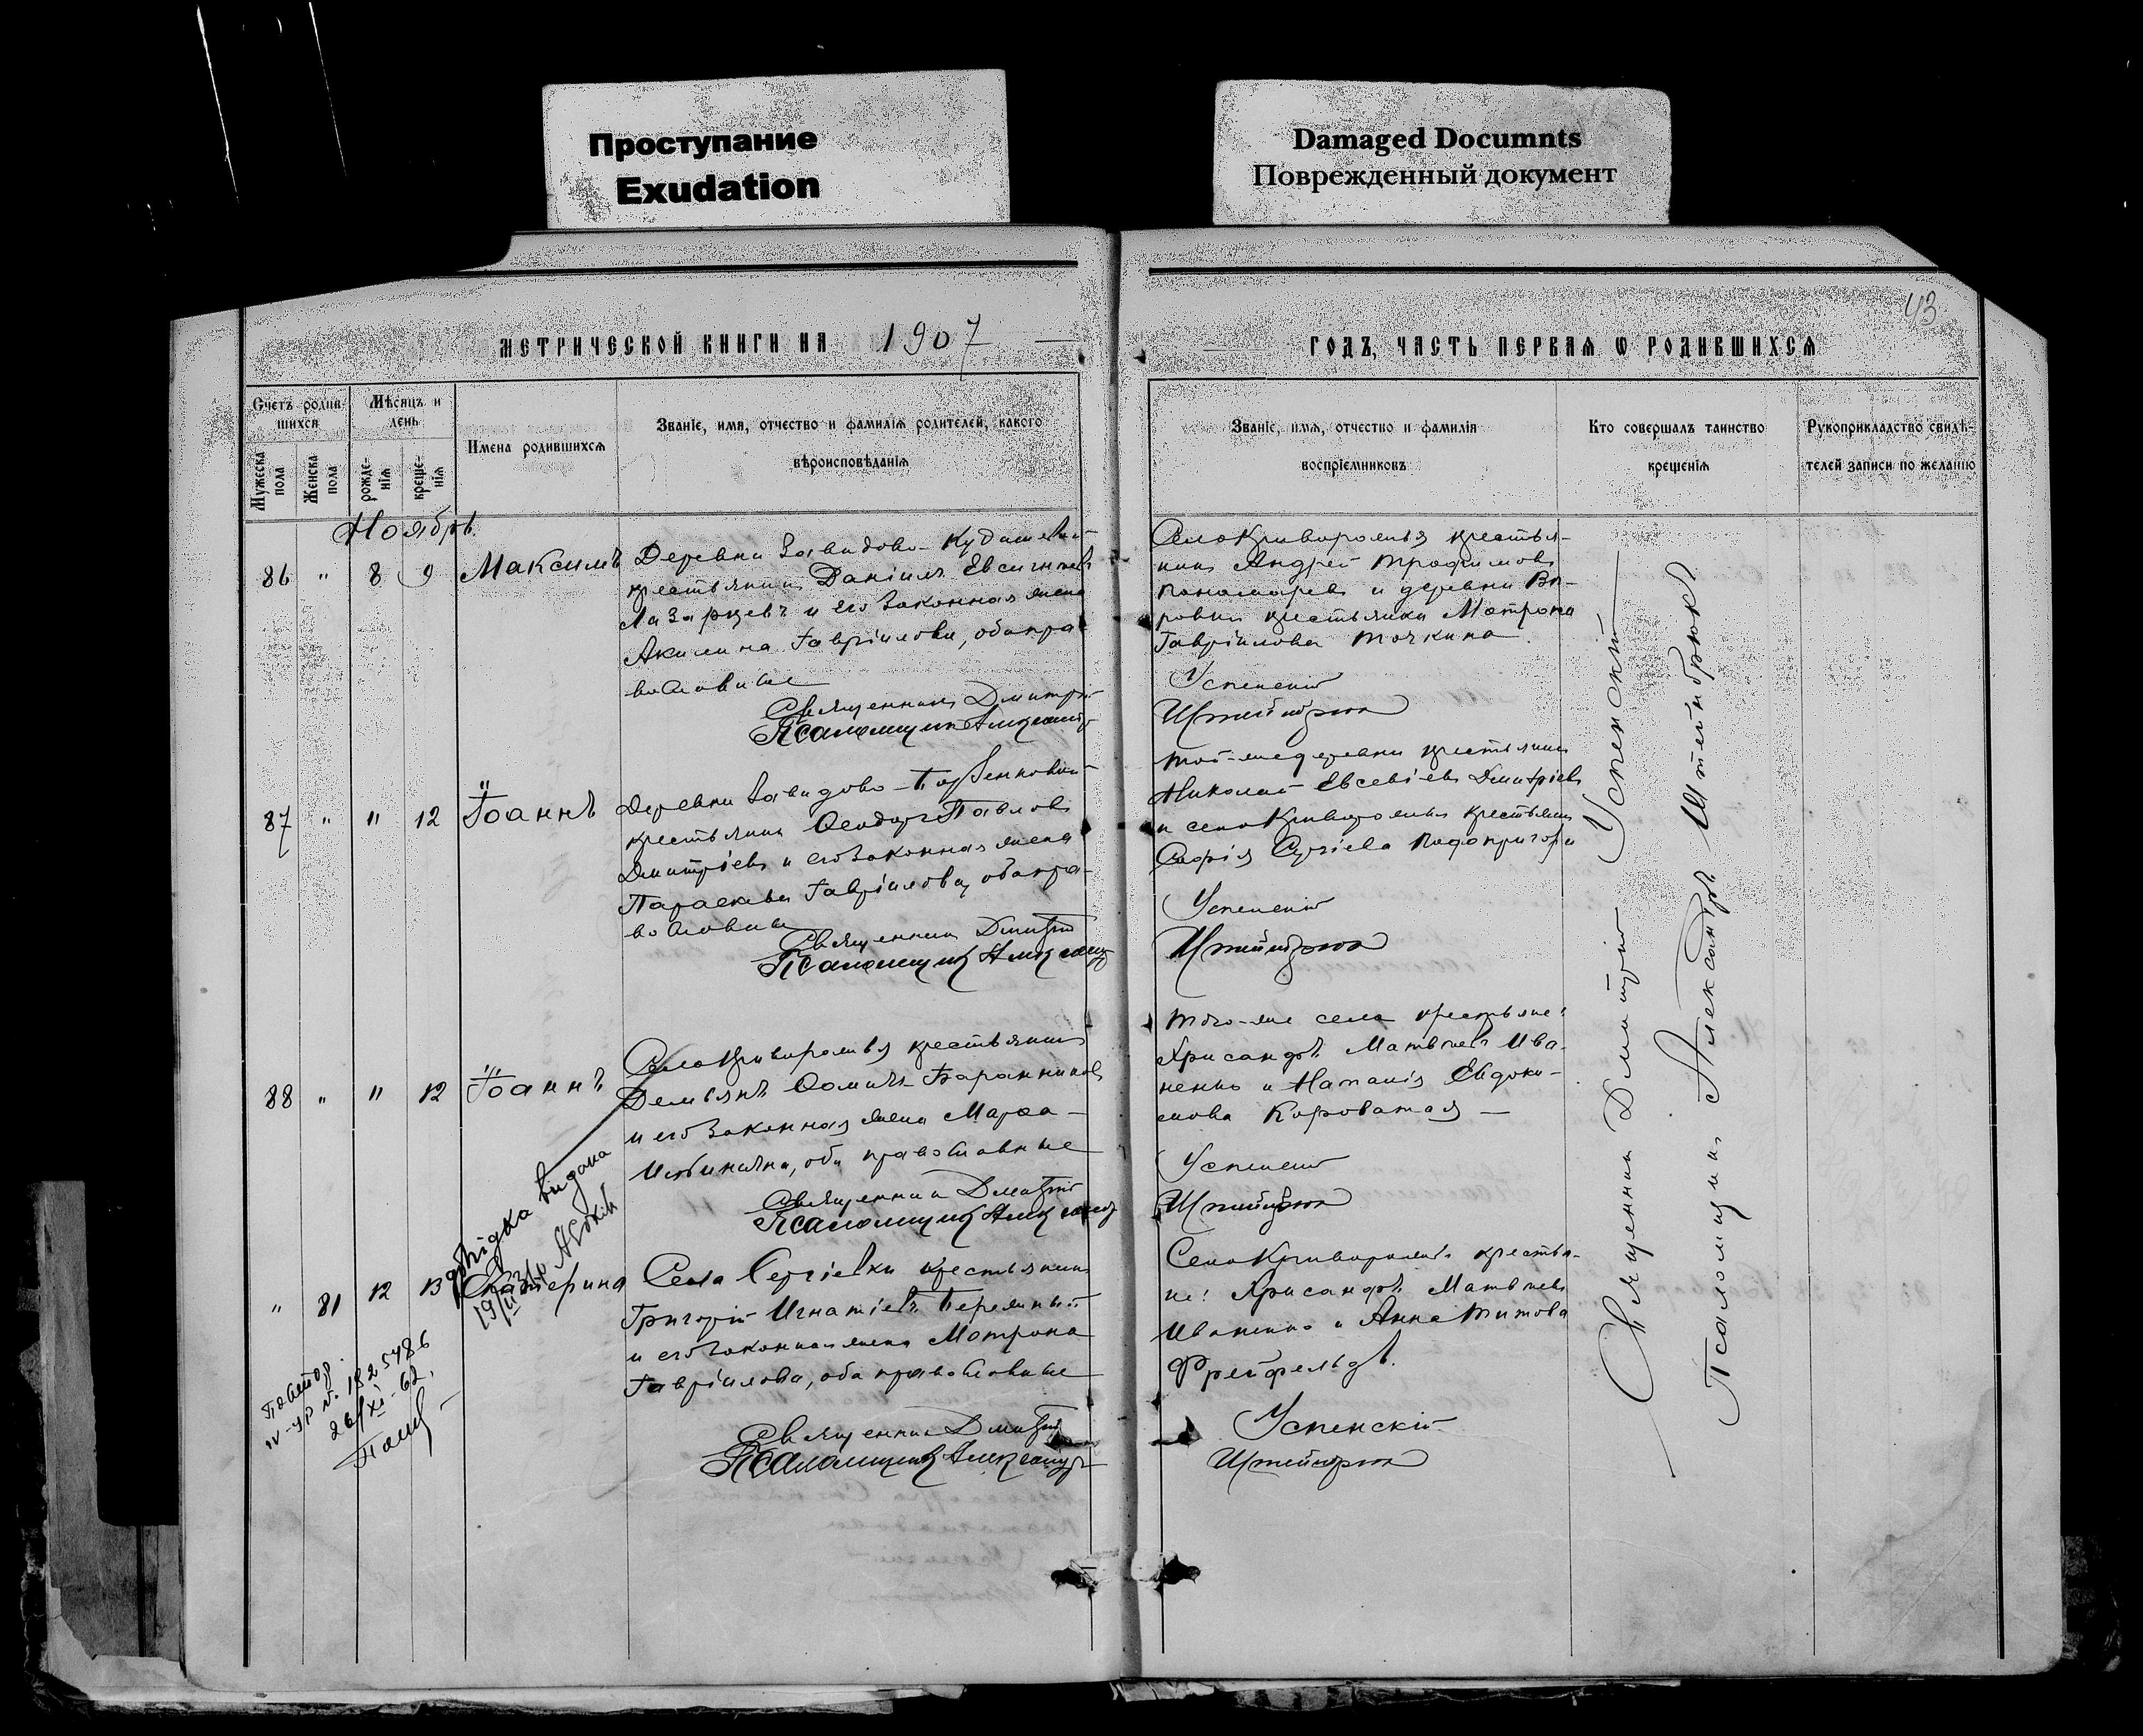 Проступание
Exudation
Damaged Documnts
Поврежденный документ
43
МЕТРИЧЕСКОЙ КНИГИ НА 1907
ГОДЪ, ЧАСТЬ ПЕРВАЯ Ѡ РОДИВШИХСЯ
Счетъ родив-
шихся
Мѣсяцъ и
день
Мужеска
пола
Женска
пола
рожде-
нія
креще-
нія
Имена родившихся
Званіе, имя, отчество и фамилія родителей, какого
вѣроисповѣданія
Званіе, имя, отчество и фамилія
воспріемниковъ
Кто совершалъ таинство
крещенія
Рукоприкладство свидѣ-
телей записи по желанію
Ноябрь
86 " 8 9 Максимъ
Деревни Завидово-
крестьянинъ Даніилъ
Лазарцевъ и его законная жена
Акилина Гавріилова, оба пра-
вославные
Священникъ Дмитрій
Псаломщикъ Александръ
Село Криворожья крестья-
нинъ Андрей Трофимовъ
Пономаревъ и деревни
крестьянка Матрона
Гавріилова Точкина.
Успенскій
Штейнбрюкъ
87 " " 12 Іоаннъ
Деревни Завидово-
крестьянинъ Ѳеодоръ Павловъ
Дмитріевъ и его законная жена
Параскева Гавріилова, оба пра-
вославные
Священникъ Дмитрій
Псаломщикъ Александръ
той-же деревни крестьянинъ
Николай Евсевіевъ Дмитріевъ
и села Криворожья крестьянка
Софія Сергіева
Успенскій
Штейнбрюкъ
88 " " 12 Іоаннъ
Село Криворожья крестьянинъ
Демьянъ Ѳомичъ Баранниковъ
и его законная жена Марѳа
оба православные
Священникъ Дмитрій
Псаломщикъ Александръ
того-же села крестьяне:
Хрисанфъ Матвѣевъ Ива-
ненко и Наталія Евдоки-
мова Короватая
Успенскій
Штейнбрюкъ
" 81 12 13 Екатерина
Села Сергіевки крестьянинъ
Григорій Игнатіевъ
и его законная жена Матрона
Гавріилова, оба православные
Священникъ Дмитрій
Псаломщикъ Александръ
Село Криворожья крестья-
не: Хрисанфъ Матвѣевъ
Иваненко и Анна Титова
Фрейфельдъ.
Успенскій
Штейнбрюкъ
Довідка видана
Повтор.
IV-УР № 1825486
26/XI-62.
Священникъ Дмитрій Успенскій
Псаломщикъ Александръ Штейнбрюкъ